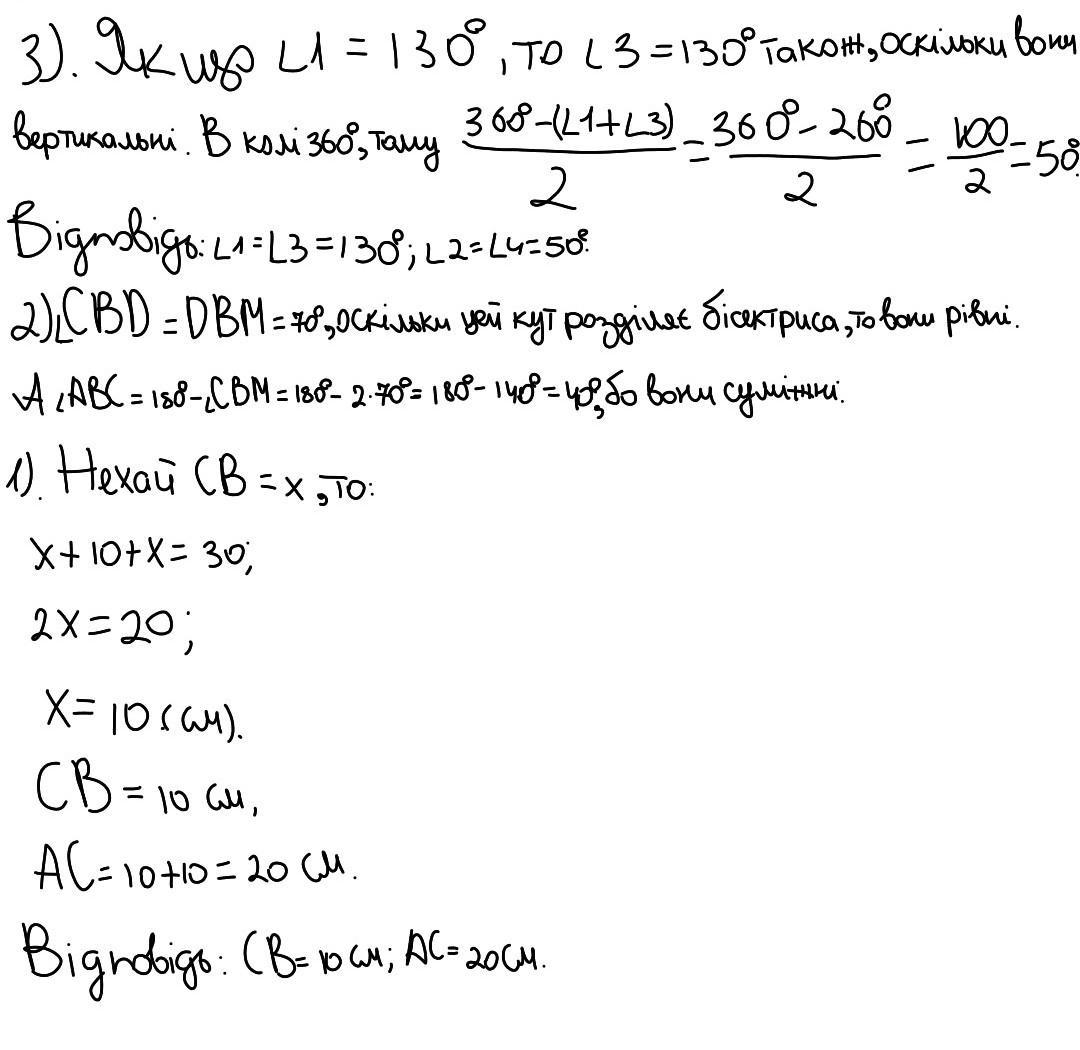 3). Якщо ∠1 = 130°, то ∠3 = 130° також, оскільки вони
вертикальні. В колі 360°, тому (360°-(∠1+∠3))/2 = (360°-260°)/2 = 100/2 = 50°.
Відповідь: ∠1=∠3=130°; ∠2=∠4=50°.
2) ∠CBD = DBM = 70°, оскільки цей кут розділяє бісектриса, то вони рівні.
А ∠ABC = 180°-∠CBM = 180°- 2·70° = 180°- 140° = 40°, бо вони суміжні.
1). Нехай CB = x, то:
x+10+x= 30;
2x=20;
x= 10 (см).
CB = 10 см,
AC= 10+10 = 20 см.
Відповідь: CB= 10 см; AC= 20 см.